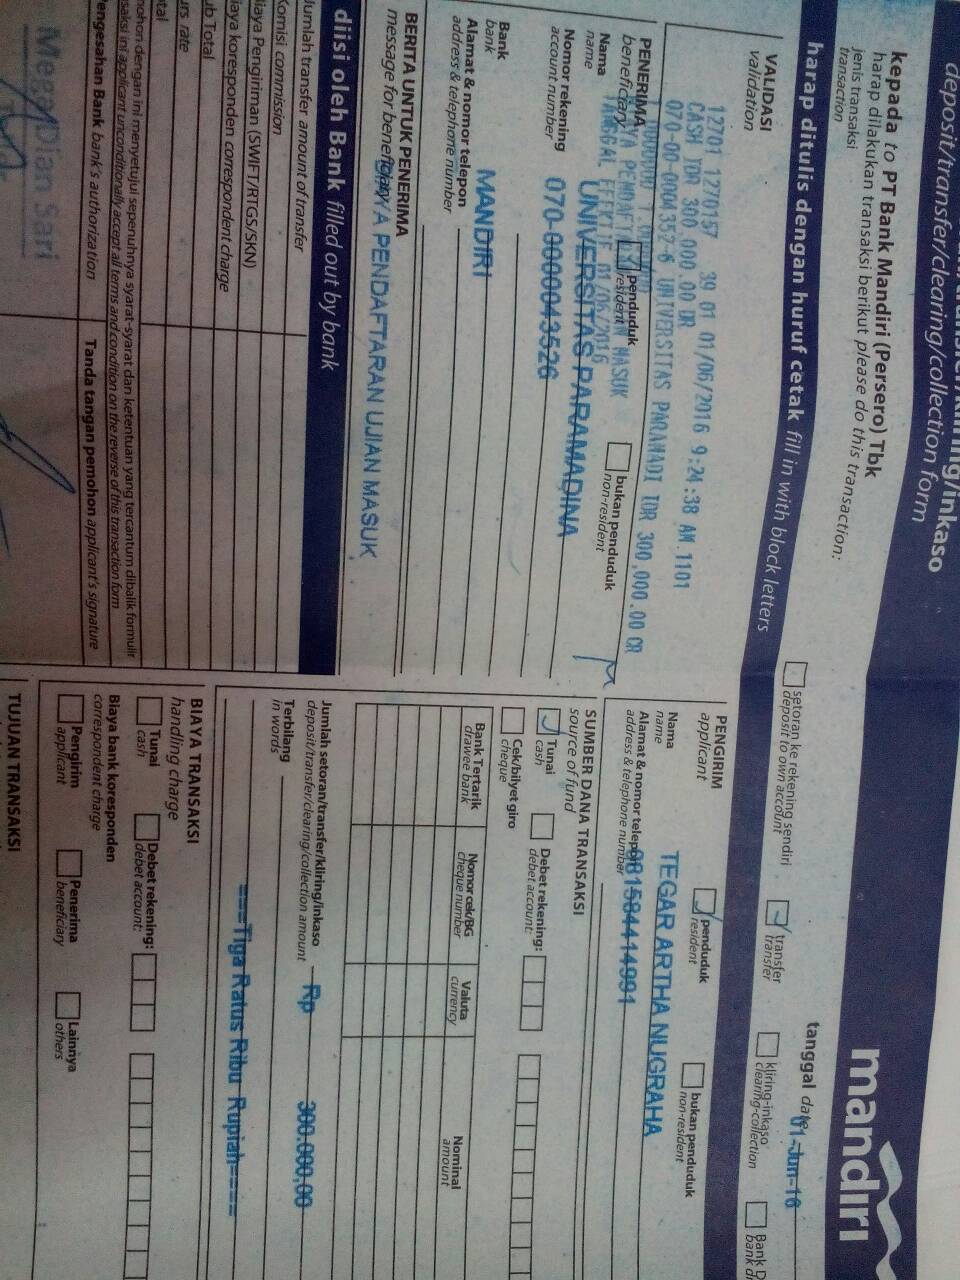 deposit/transfer/clearing/collection form
mandırı
kepada to PT Bank Mandiri (Persero) Tbk
harap dilakukan transaksi berikut please do this transaction:
jenis transaksi
transaction
setoran ke rekening sendiri
deposit to own account
transfer
transfer
kliring-inkaso
clearing-collection
tanggal date 01-Jun-16
harap ditulis dengan huruf cetak fill in with block letters
VALIDASI
validation
12701 1270157 39 01 01/06/2016 9:24:38 AM 1101
CASH IDR 300,000.00 DR
070-00-0004352-6 UNIVERSITAS PARAMADI IDR 300,000.00 CR
TANGGAL EFEKTIF 01/06/2016
PENERIMA
beneficiary
penduduk
resident
bukan penduduk
non-resident
Nama
name
UNIVERSITAS PARAMADINA
Nomor rekening
account number
070-0000043526
Bank
bank
MANDIRI
Alamat & nomor telepon
address & telephone number
BERITA UNTUK PENERIMA
message for beneficiary
BIAYA PENDAFTARAN UJIAN MASUK
diisi oleh Bank filled out by bank
Jumlah transfer amount of transfer
Komisi commission
Biaya Pengiriman (SWIFT/RTGS/SKN)
Biaya koresponden correspondent charge
Sub Total
Kurs rate
Total
Pemohon dengan ini menyetujui sepenuhnya syarat-syarat dan ketentuan yang tercantum dibalik formulir
transaksi ini applicant unconditionally accept all terms and condition on the reverse of this transaction form
Pengesahan Bank bank's authorization
Tanda tangan pemohon applicant's signature
Megan Dian Sari
PENGIRIM
applicant
penduduk
resident
bukan penduduk
non-resident
Nama
name
TEGAR ARTHA NUGRAHA
Alamat & nomor telepon
address & telephone number
081584414991
SUMBER DANA TRANSAKSI
source of fund
Tunai
cash
Debet rekening:
debet account:
Cek/bilyet giro
cheque
Bank Tertarik
drawee bank
Nomor cek/BG
cheque number
Valuta
currency
Nominal
amount
Jumlah setoran/transfer/kliring/inkaso
deposit/transfer/clearing/collection amount
Rp 300.000,00
Terbilang
in words
===Tiga Ratus Ribu Rupiah===
BIAYA TRANSAKSI
handling charge
Tunai
cash
Debet rekening:
debet account:
Biaya bank koresponden
correspondent charge
Pengirim
applicant
Penerima
beneficiary
Lainnya
others
TUJUAN TRANSAKSI